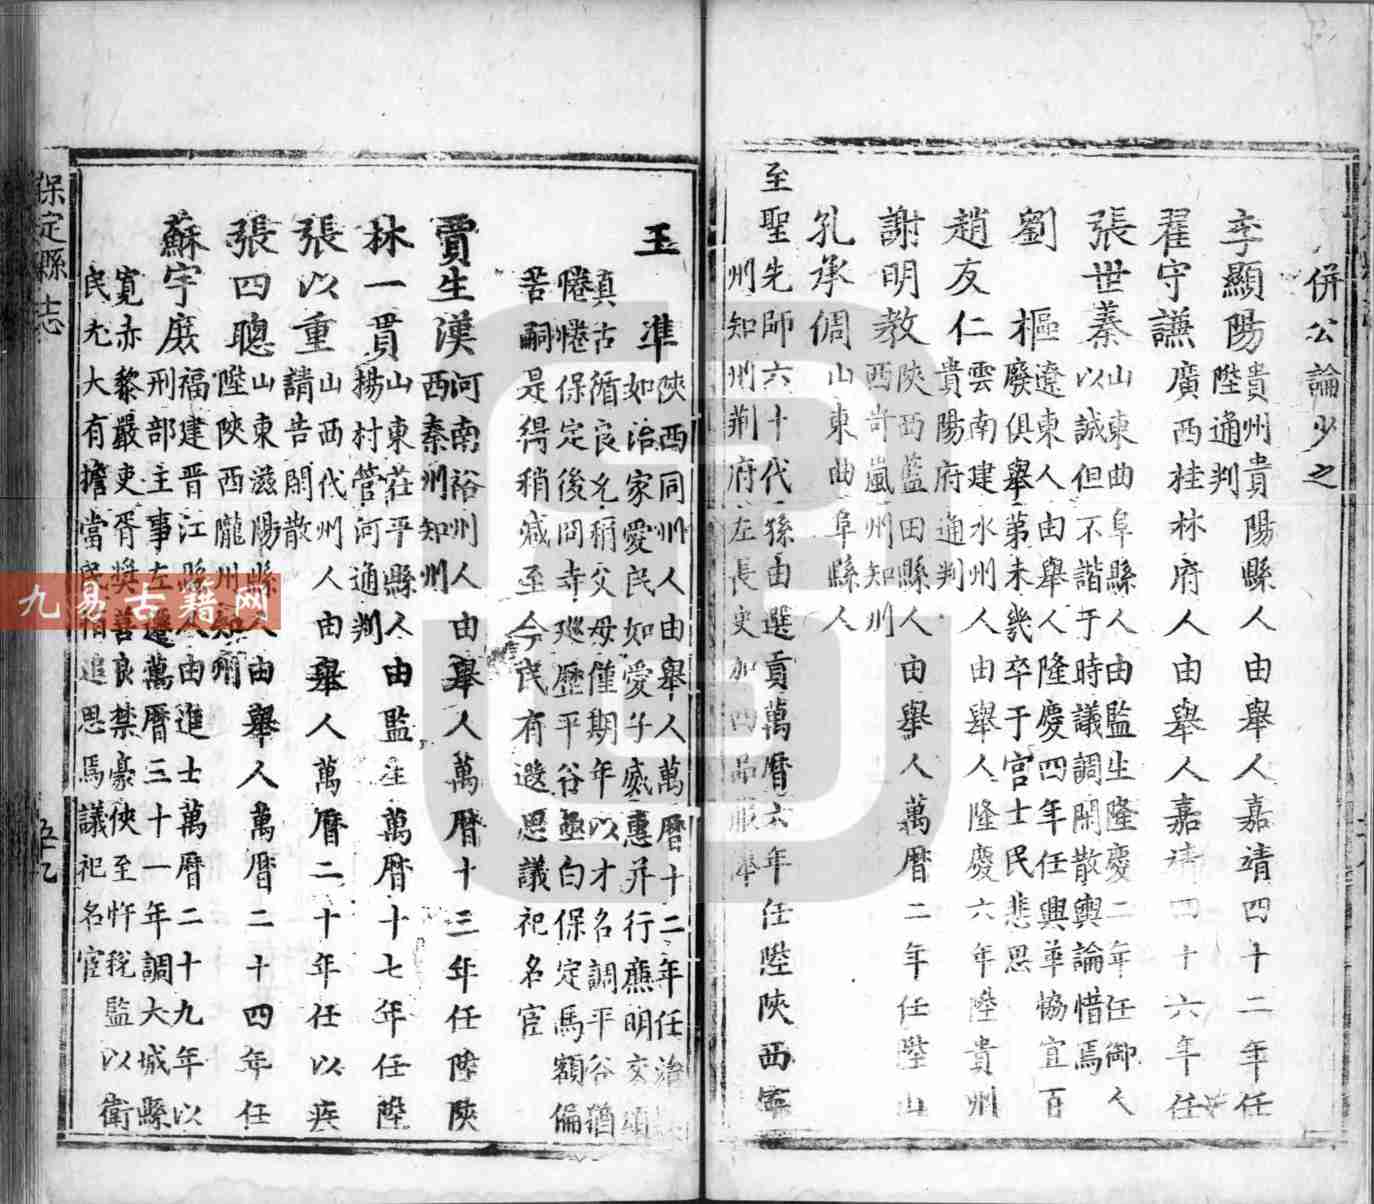 併公論少之
李顯陽貴州貴陽縣人由舉人嘉靖四十二年任
陞通判
翟守謙廣西桂林府人由舉人嘉靖四十六年任
張世蓁山東曲阜縣人由監生隆慶二年任御人
以誠但不諧于時議調閑散輿論惜焉
劉樞遼東人由舉人隆慶四年任興革協宜百
廢俱舉第未幾卒于官士民悲思
趙友仁雲南建水州人由舉人隆慶六年陞貴州
貴陽府通判
謝明教陝西藍田縣人由舉人萬曆二年任陞山
西岢嵐州知州
孔承倜山東曲阜縣人
至聖先師六十代孫由選貢萬曆六年任陞陝西寧
州知州荆府左長史加四品服奉
王準陝西同州人由舉人萬曆十二年任治
如治家愛民如愛子威惠并行廉明交頌
真古循良允稱父母僅期年以才名調平谷猶
惓惓保定後同寺廵歷平谷亟白保定馬額偏
苦嗣是得稍減至今民有遐思議祀名宦
賈生漢河南裕州人由舉人萬曆十三年任陞陝
西秦州知州
林一貫山東莊平縣人由監生萬曆十七年任陞
楊村管河通判
張以重山西代州人由舉人萬曆二十年任以疾
請告閑散
張四聰山東滋陽縣人由舉人萬曆二十四年任
陞陝西隴州知州
蘇宇庶福建晉江縣人由進士萬曆二十九年以
刑部主事左遷萬曆三十一年調大城縣
寬亦黎嚴吏胥奬善良禁豪俠至忤稅監以衛
民尤大有擔當民相追思焉議祀名宦
保定縣志
五十九
九易古籍网